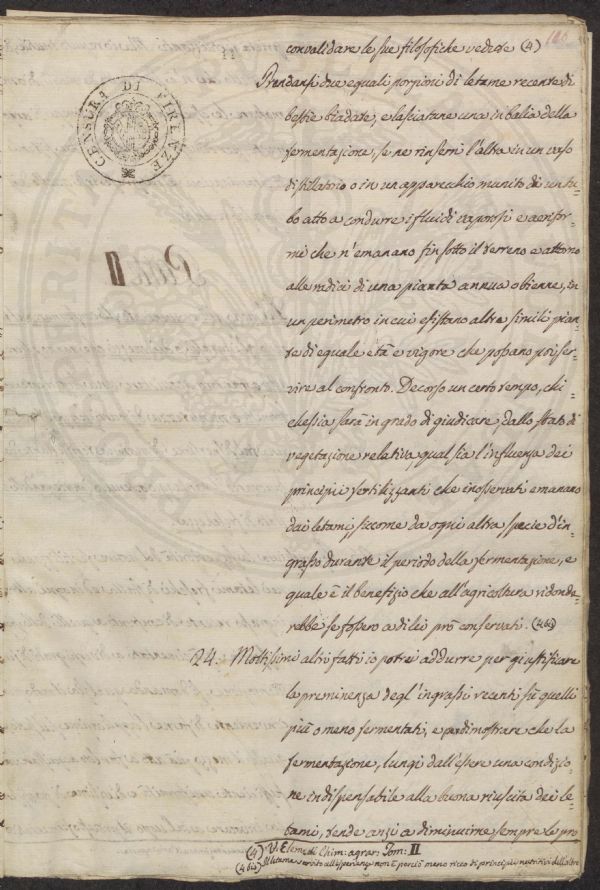 11
140
CENSURA DI FIRENZE
convalidare le sue filosofiche vedute (4)
Prendansi due eguali porzioni di letame recente di
bestie biadate, e lasciatane una in balìa della
fermentazione, se ne rinserri l'altra in un vaso
distillatorio o in un apparecchio munito di un tu-
bo atto a condurre i fluidi vaporosi e aerifor-
mi che n'emanano fin sotto il terreno e attorno
alle radici di una pianta annua o bienne, in
un perimetro in cui esistano altre simili pian-
te di eguale età e vigore che possano poi ser-
vire al confronto. Decorso un certo tempo, chi-
chesia sarà in grado di giudicare, dallo stato di
vegetazione relativa, qual sia l'influenza dei
principii fertilizzanti che inosservati emanano
dai letami, siccome da ogni altra specie d'in-
grasso durante il periodo della fermentazione, e
quale è il benefizio che all'agricoltura ridonde-
rebbe se fossero a di lei prò conservati. (4 bis)
24. Moltissimi altri fatti io potrei addurre per giustificare
la preminenza degl'ingrassi recenti sù quelli
più o meno fermentati, e per dimostrare che la
fermentazione, lungi dall'essere una condizio-
ne indispensabile alla buona riuscita dei le-
tami, tende anzi a diminuirne sempre la pro
(4) V. Elem: di Chim: agrar: Tom: II
(4 bis) Il letame servito all'esperienza non è perciò meno ricco di principii nutritivi dell'altro